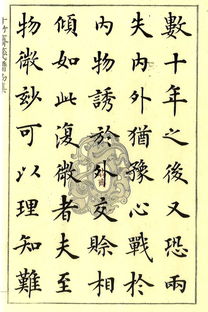 數十年之後又恐兩
失內外猶豫心戰於
內物誘於外交賒相
傾如此復微者夫至
物微妙可以理知難